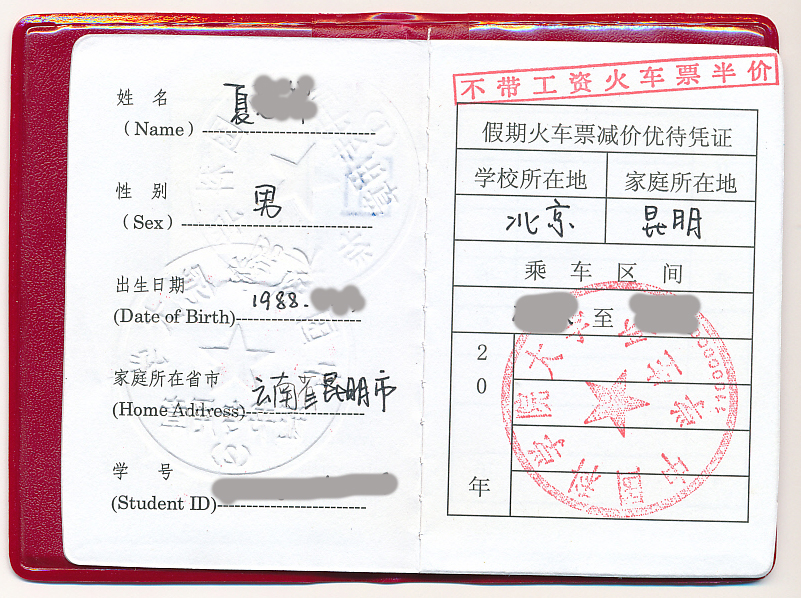 姓 名 夏
(Name)
性 别 男
(Sex)
出生日期 1988.
(Date of Birth)
家庭所在省市 云南省昆明市
(Home Address)
学 号
(Student ID)
不带工资火车票半价
假期火车票减价优待凭证
学校所在地 家庭所在地
北京 昆明
乘 车 区 间
至
20
年